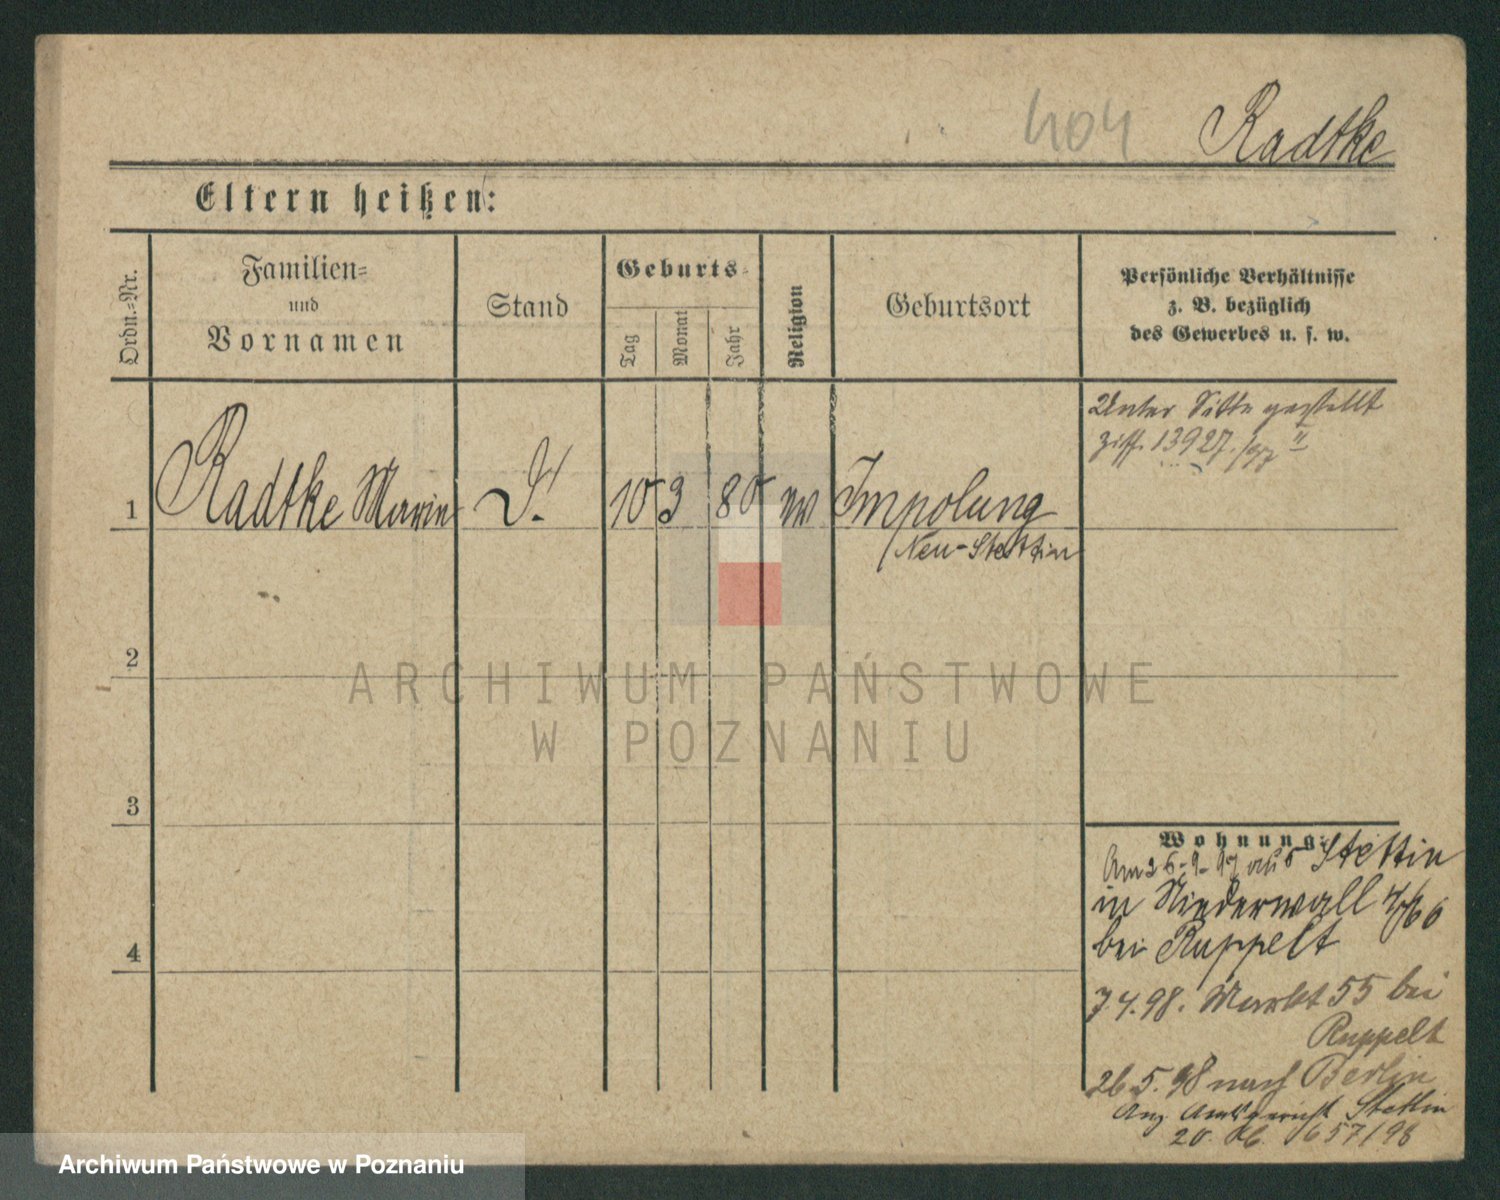 404 Radtke
Eltern heißen:
Ordn.-Nr.
Familien-
und
Vornamen
Stand
Geburts-
Tag
Monat
Jahr
Religion
Geburtsort
Persönliche Verhältnisse
z. B. bezüglich
des Gewerbes u. s. w.
Unter Sitte gestellt
ziff. 13927./97 II
1 Radtke Marie 10 3 80 Impolung
Neu-Stettin
2
3
4
Wohnung:
Am 25.9.97 aus Stettin
in Niederwall 4/66
bei Ruppelt
7.4.98. Markt 55 bei
Ruppelt
26.5.98 nach Berlin
Anz Amtsgericht Stettin
20. 657/98
ARCHIWUM PAŃSTWOWE
W POZNANIU
Archiwum Państwowe w Poznaniu